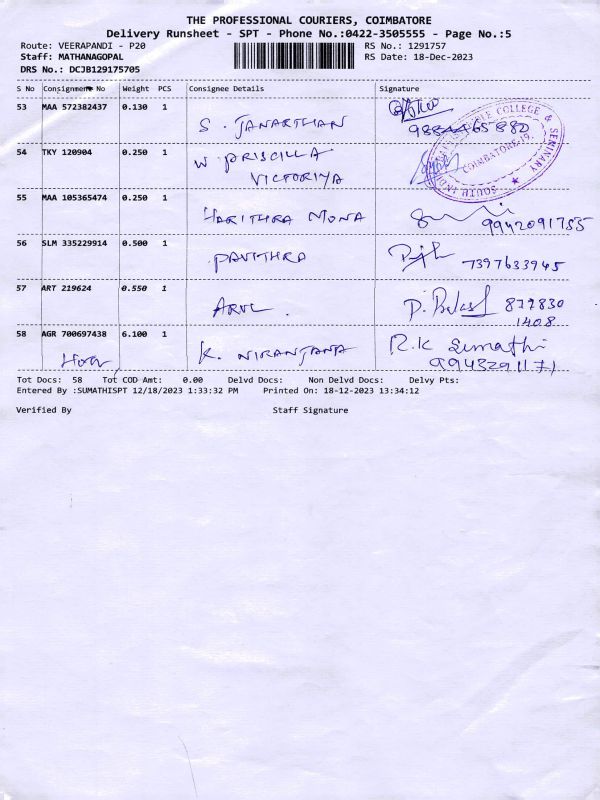 THE PROFESSIONAL COURIERS, COIMBATORE
Delivery Runsheet - SPT - Phone No.:0422-3505555 - Page No.:5
Route: VEERAPANDI - P20 RS No.: 1291757
Staff: MATHANAGOPAL RS Date: 18-Dec-2023
DRS No.: DCJB129175705
S No Consignment No Weight PCS Consignee Details Signature
53 MAA 572382437 0.130 1
S. JANARTHAN 9884465880
54 TKY 120904 0.250 1
W PRISCILLA
VICTORIYA
COLLEGE & SEMINARY
COIMBATORE-19.
SOUTH INDIA
55 MAA 105365474 0.250 1
HARITHRA MONA 9942091755
56 SLM 335229914 0.500 1
PAVITHRA 7397633945
57 ART 219624 0.550 1
ARUL. 872830
1408
58 AGR 700697438 6.100 1
K. NIRANJANA R.K Sumathi
9943291171
Tot Docs: 58 Tot COD Amt: 0.00 Delvd Docs: Non Delvd Docs: Delvy Pts:
Entered By :SUMATHISPT 12/18/2023 1:33:32 PM Printed On: 18-12-2023 13:34:12
Verified By Staff Signature